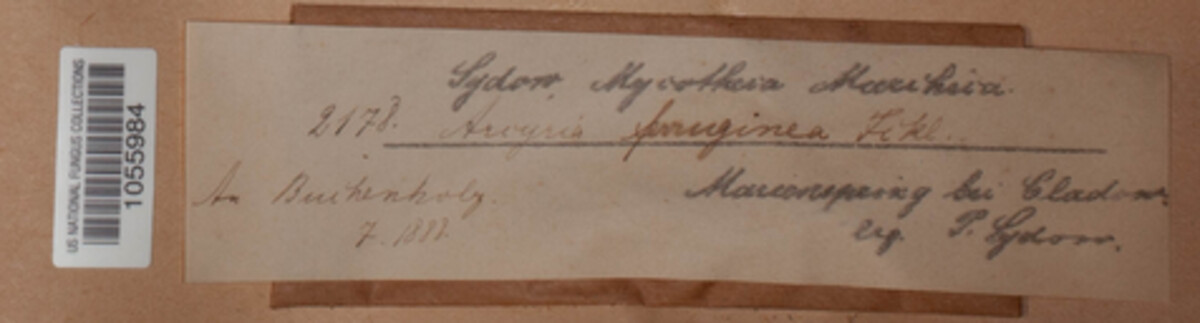 US NATIONAL FUNGUS COLLECTIONS
1055984
Sydow, Mycotheca Marchica.
2178. Arcyria ferruginea Fckl.
An Buchenholz.
7. 1888.
bei Cladow.
leg. P. Sydow.